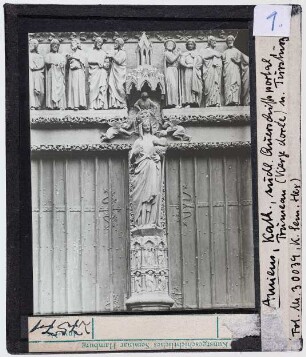 1.
Amiens, Kath., südl. Querschiffsportal
Trumeau (Vierge dorée) u. Türsturz
Fot. Nr. 30039, K. Sem. Hbg
Kunstgeschichtliches Seminar Hamburg